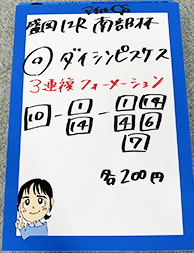 マイルCS
盛岡12R 南部杯
◎ ダイシンピスケス
3連複 フォーメーション
1 1 14
10 - 14 - 4 6
7
各200円